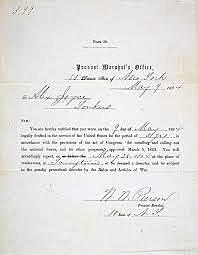 Form 39.
Provost Marshal's Office,
District, State of New York
May 9, 1864
To Alex Joyce
Yonkers
SIR:
You are hereby notified that you were, on the 9 day of May, 1864,
legally drafted in the service of the United States for the period of
accordance with the provisions of the act of Congress, "for enrolling and calling
out the national forces, and for other purposes," approved March 3, 1863. You will
accordingly report, on or before the May 26, 1864, at the place of
rendezvous, in Tarrytown, or be deemed a deserter, and be subject to
the penalty prescribed therefor by the Rules and Articles of War.
Provost Marshal,
N.Y.